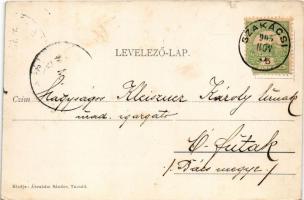 LEVELEZŐ-LAP.
SZAKÁCSI
905
NOV
5
Czim Nagyságos Kleiszner Károly úrnak
urad. igazgató
Ó-Futak
/: Bács megye :/
Kiadja: Ábrahám Sándor, Tamási.